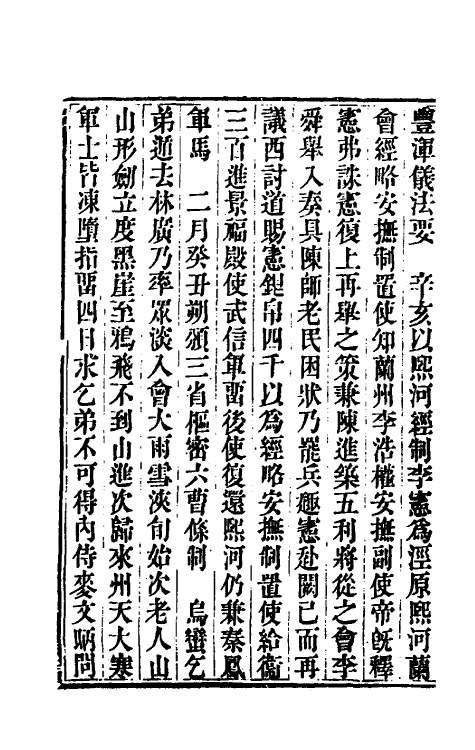 豐渾儀法要　辛亥以熙河經制李憲爲涇原熙河蘭
會經略安撫制置使知蘭州李浩權安撫副使帝旣釋
憲弗誅憲復上再舉之策兼陳進築五利將從之會李
舜舉入奏具陳師老民困狀乃罷兵趣憲赴闕已而再
議西討道賜憲銀帛四千以為經略安撫制置使給衞
三百進景福殿使武信軍留後使復還熙河仍兼秦鳳
軍馬　二月癸丑朔頒三省樞密六曹條制　烏蠻乞
弟遁去林廣乃率眾深入會大雨雪浹旬始次老人山
山形劍立度黑崖至鴉飛不到山進次歸來州天大寒
軍士皆凍墮指留四日求乞弟不可得內侍麥文昞問